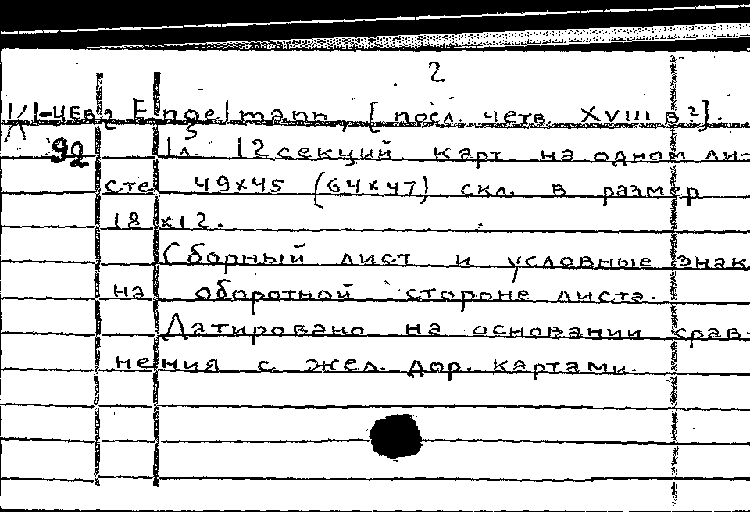 2
К 1-ЧЕВ2 Engelmann, [посл. четв. XVIII в?].
92 1л. 12 секций карт на одном ли-
сте 49х45 (64х47) скл. в размер
18х12.
Сборный лист и условные знак
на оборотной стороне листа.
Датировано на основании срав-
нения с жел. дор. картами.